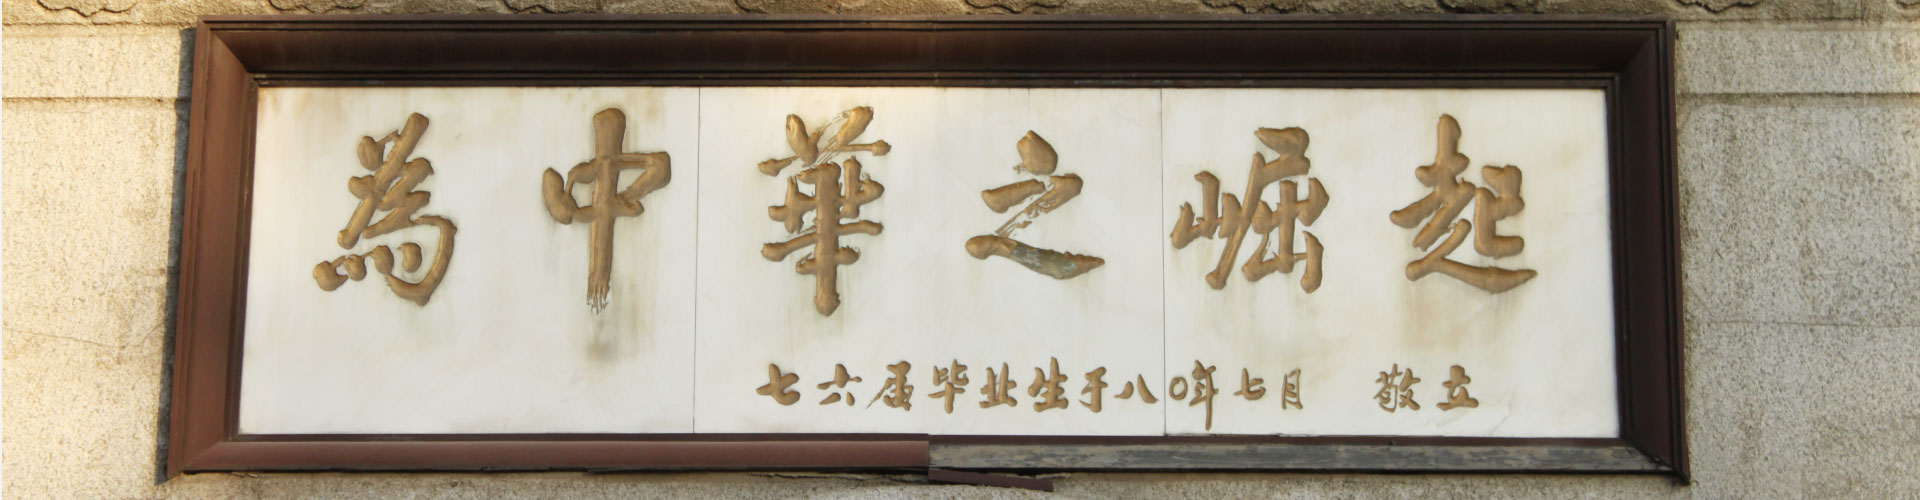 為中華之崛起
七六届毕业生于八〇年七月 敬立